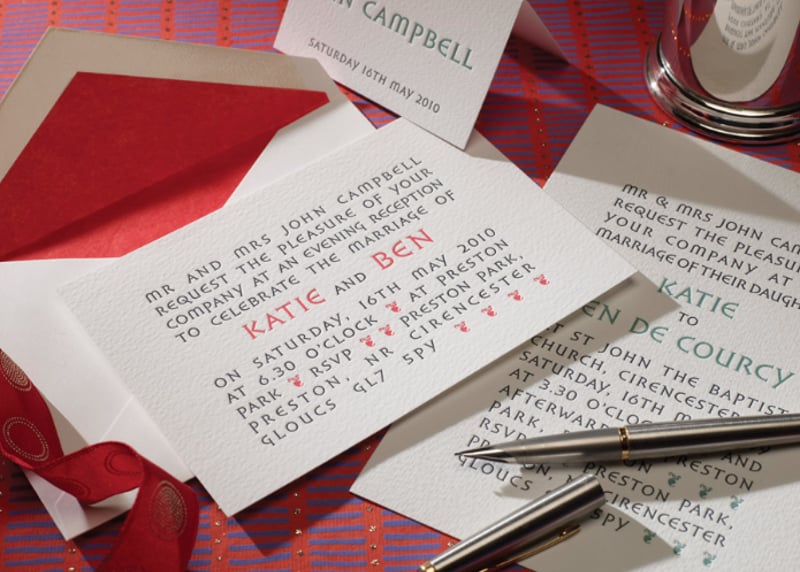 CAMPBELL
SATURDAY 16TH MAY 2010
MR AND MRS JOHN CAMPBELL
REQUEST THE PLEASURE OF YOUR
COMPANY AT AN EVENING RECEPTION
TO CELEBRATE THE MARRIAGE OF
KATIE AND BEN
ON SATURDAY, 16TH MAY 2010
AT 6.30 O'CLOCK AT PRESTON
PARK RSVP PRESTON PARK,
PRESTON, NR CIRENCESTER
GLOUCS GL7 5PY
MR & MRS JOHN CAM
REQUEST THE PLEASU
YOUR COMPANY AT
MARRIAGE OF THEIR DAUGH
KATIE
TO
EN DE COURCY
AT ST JOHN THE BAPTIST
CHURCH, CIRENCESTER
SATURDAY, 16TH M
AT 3.30 O'CLOC
AFTERWAR
PARK,
RSVP
PRESTON
AND
PRESTON PARK,
PRESTON, NR CIRENCESTER
GLOUCS 5PY